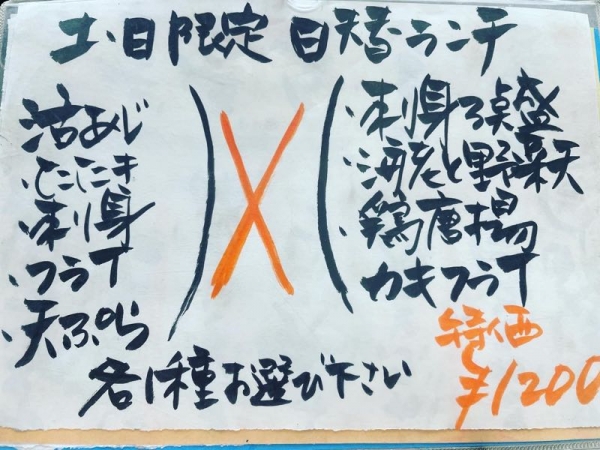 土・日限定 日替ランチ
活あじ
・たたき
・刺身
・フライ
・天ぷら
X
・刺身3点盛
・海老と野菜天
・鶏唐揚
カキフライ
各1種お選び下さい
特価
¥1200